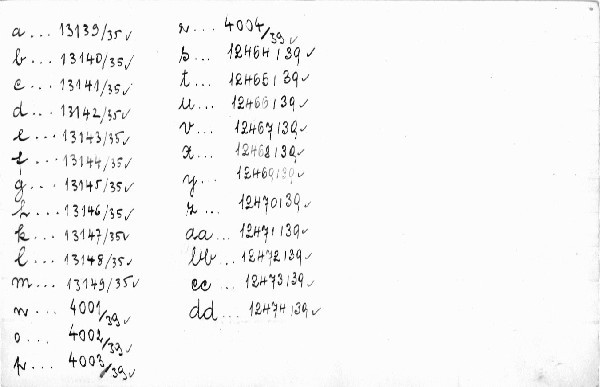 a... 13139/35✓
b... 13140/35✓
c... 13141/35✓
d... 13142/35✓
e... 13143/35✓
f... 13144/35✓
g... 13145/35✓
h... 13146/35✓
k... 13147/35✓
l... 13148/35✓
m... 13149/35✓
n... 4001/39✓
o... 4002/39✓
p... 4003/39✓
r... 4004/39✓
s... 12464/39✓
t... 12465/39✓
u... 12466/39✓
v... 12467/39✓
x... 12468/39✓
y... 12469/39✓
z... 12470/39✓
aa... 12471/39✓
bb... 12472/39✓
cc... 12473/39✓
dd... 12474/39✓